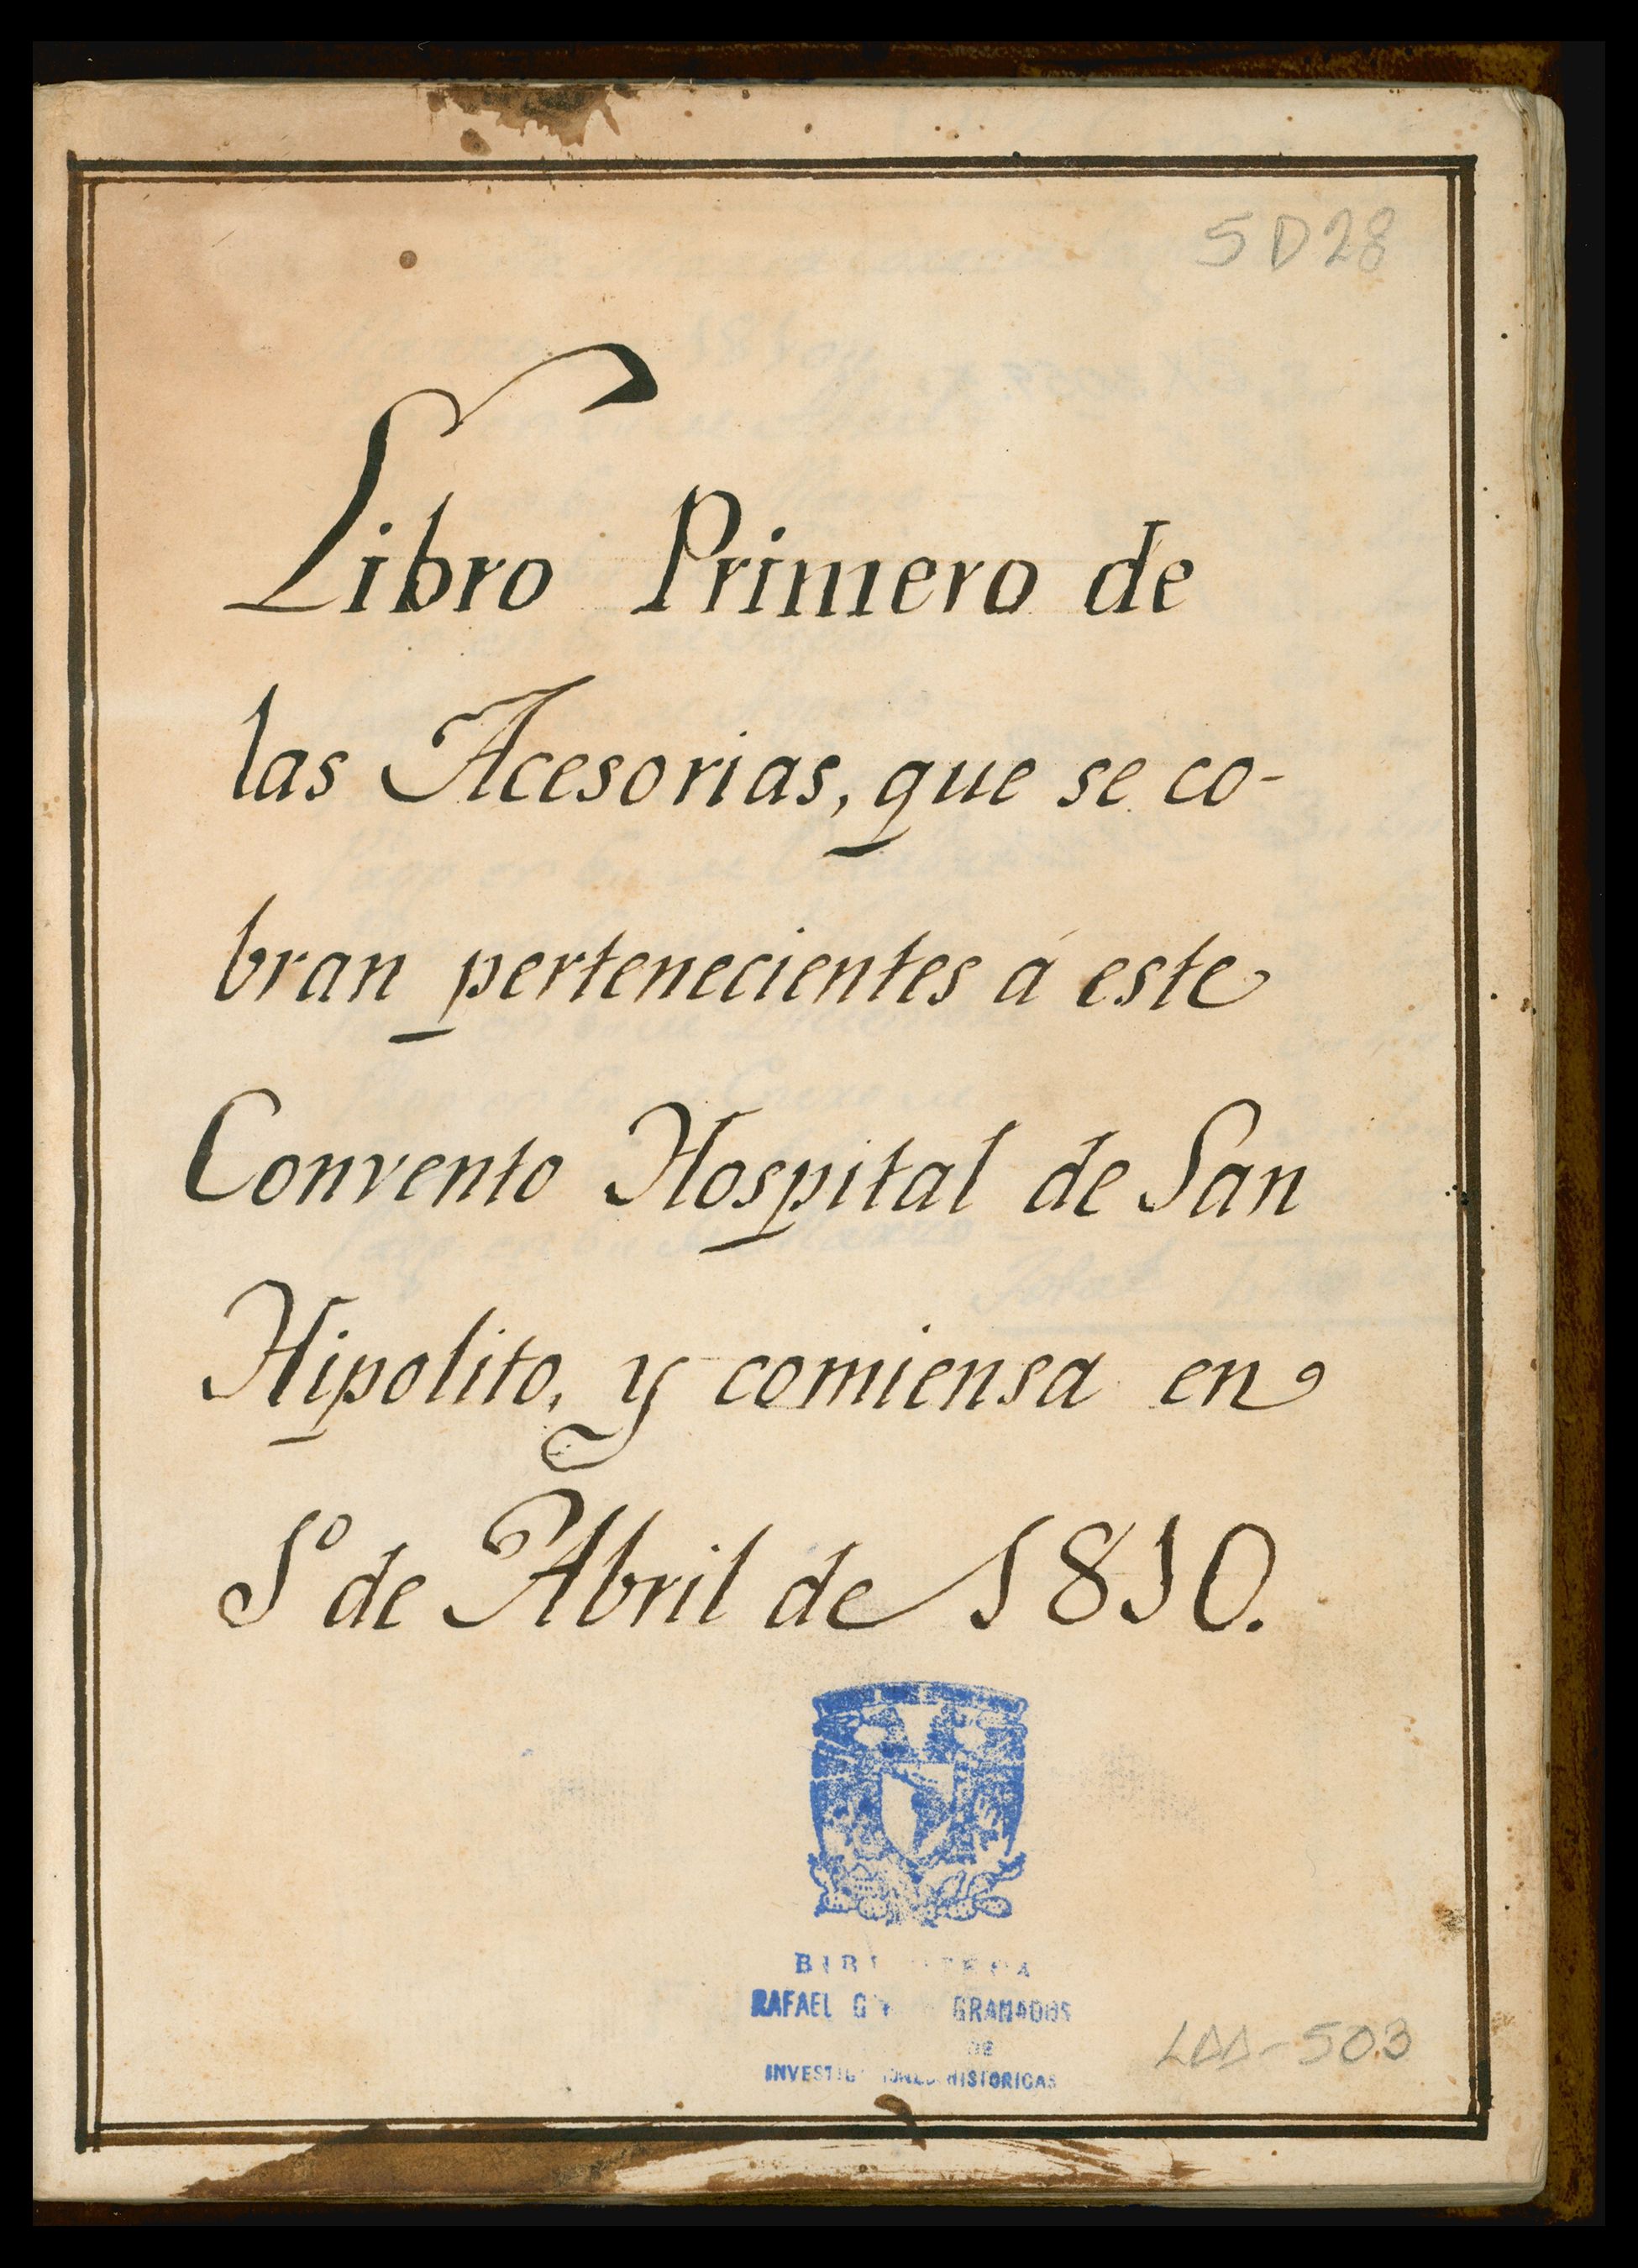 5D28
Libro Primero de
las Acesorias, que se co-
bran pertenecientes á este
Convento Hospital de San
Hipolito, y comiensa en
1º de Abril de 1810.
RAFAEL GRANADOS
DE
HISTORICAS
LDD-503